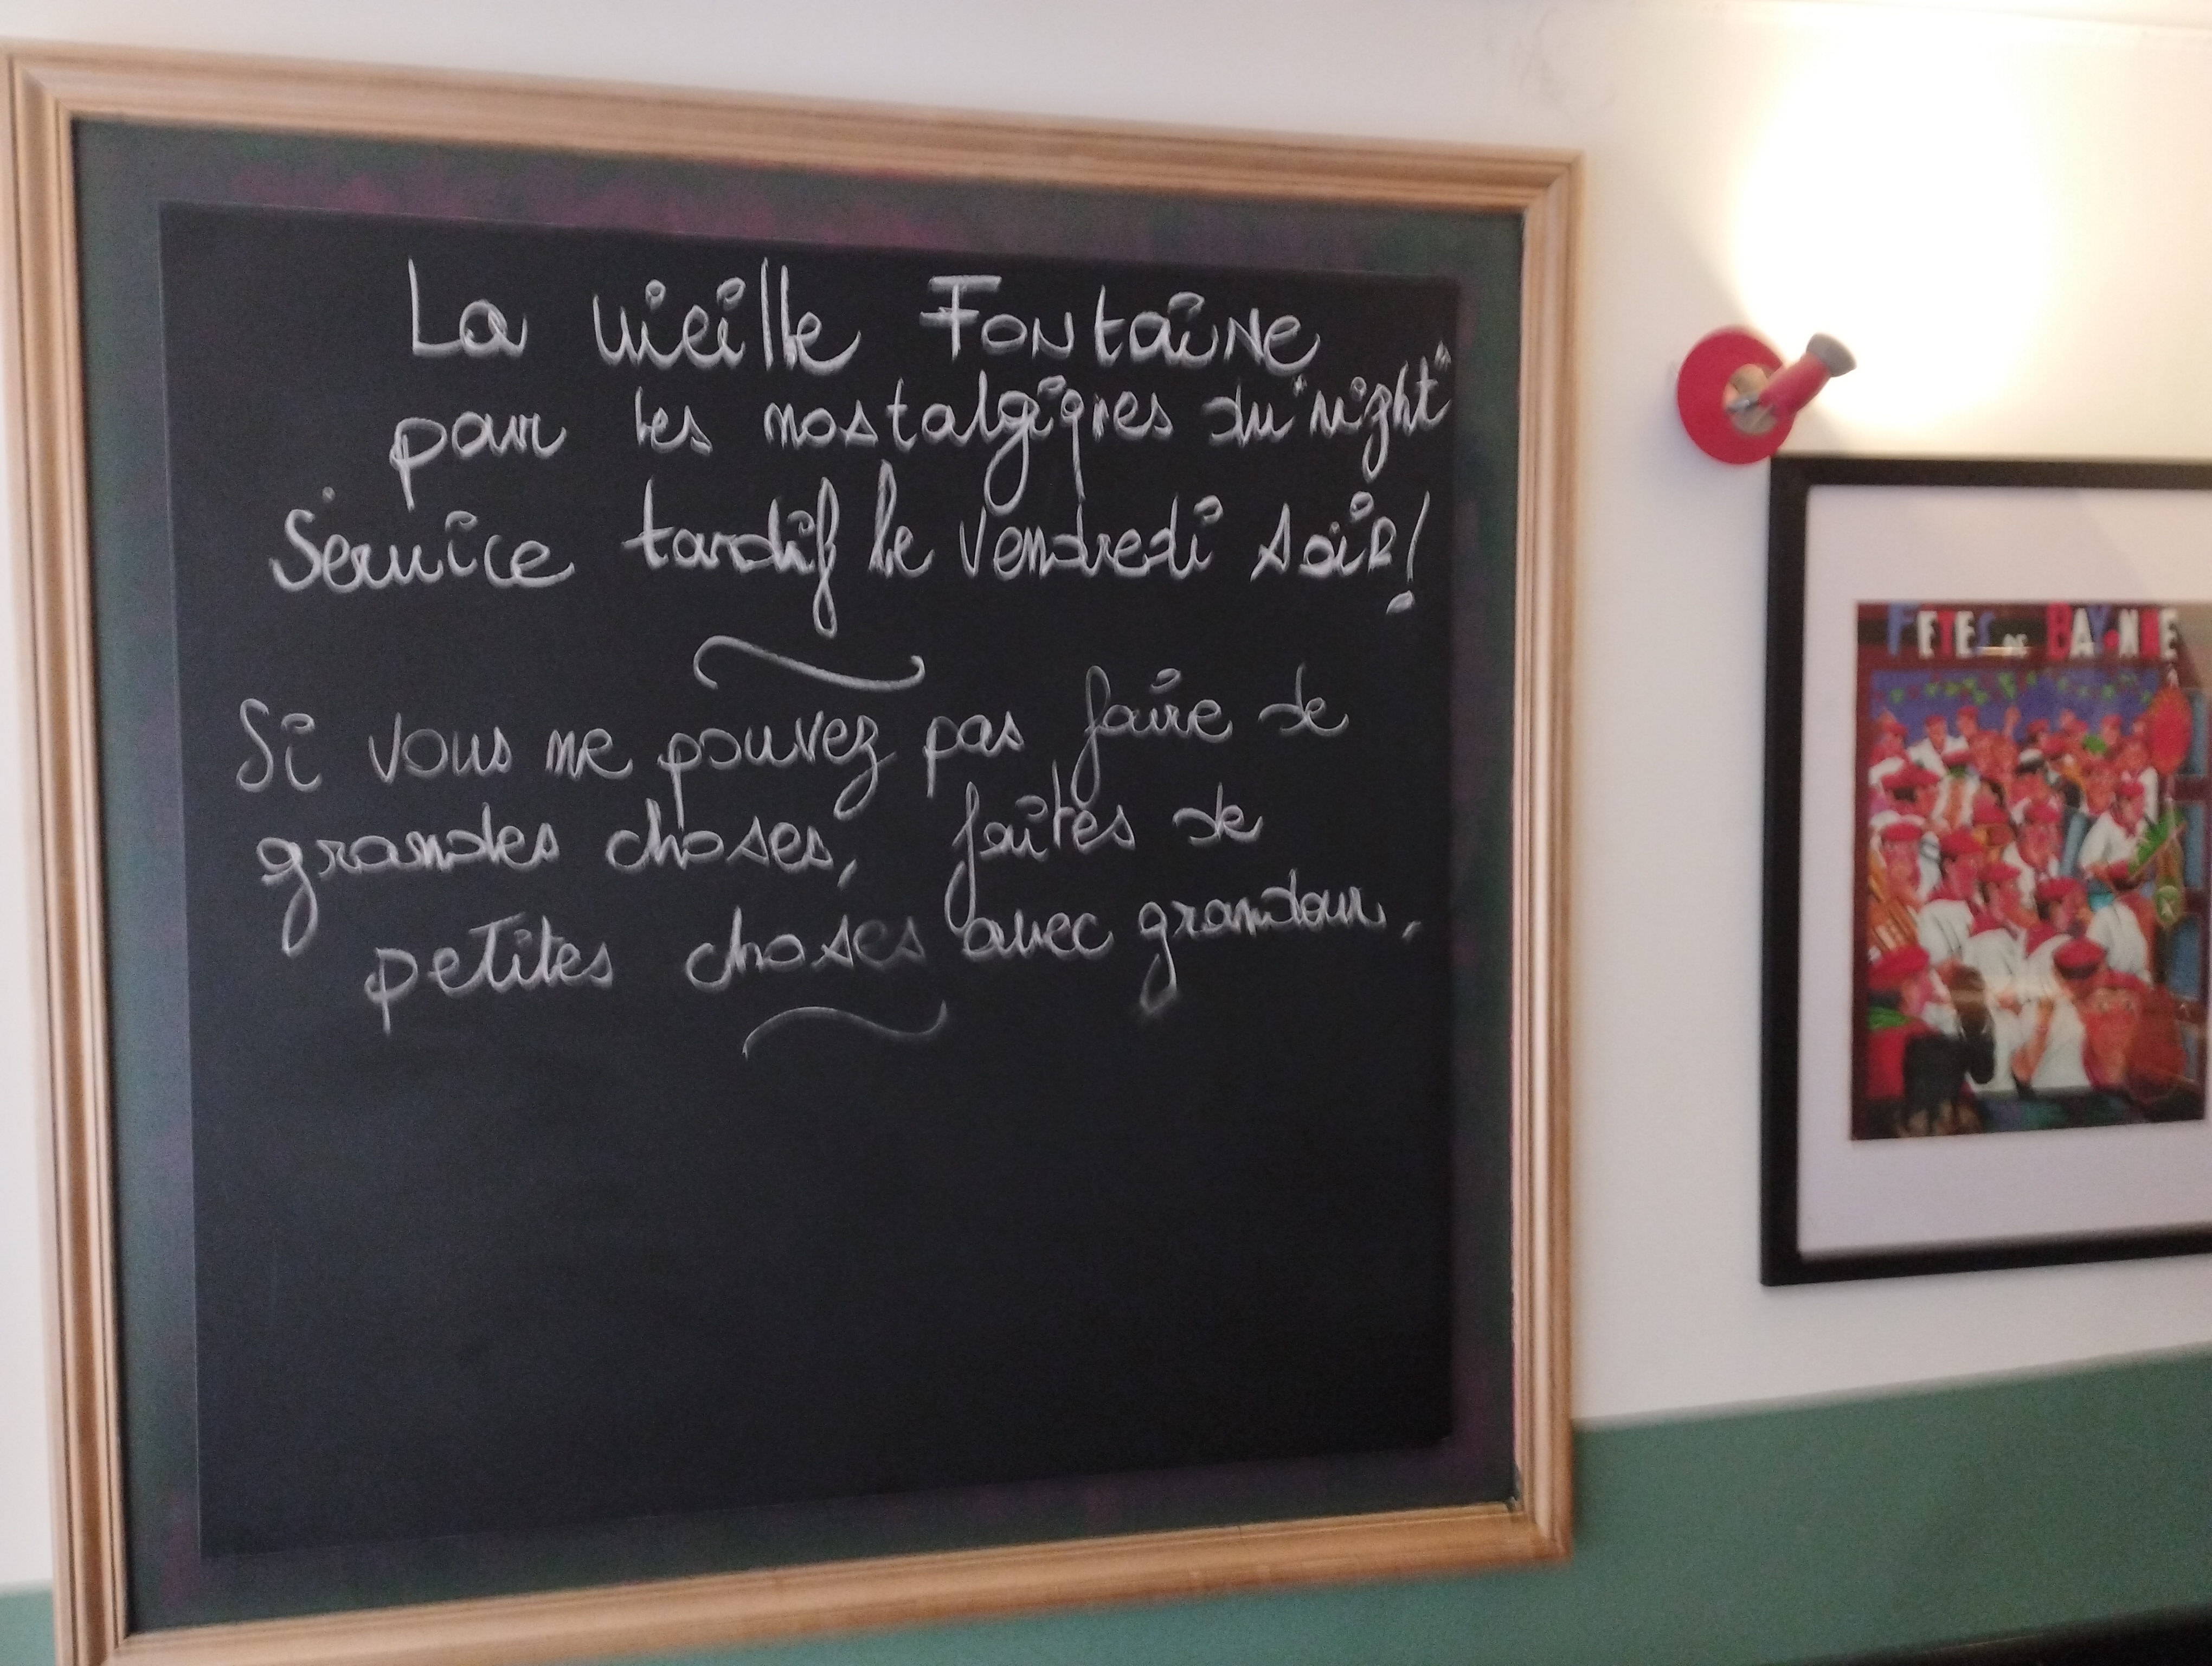 La vieille Fontaine
pour les nostalgiques du "night"
Service tardif le vendredi soir!
Si vous ne pouvez pas faire de
grandes choses, faites de
petites choses avec grandeur.
FÊTES DE BAYONNE